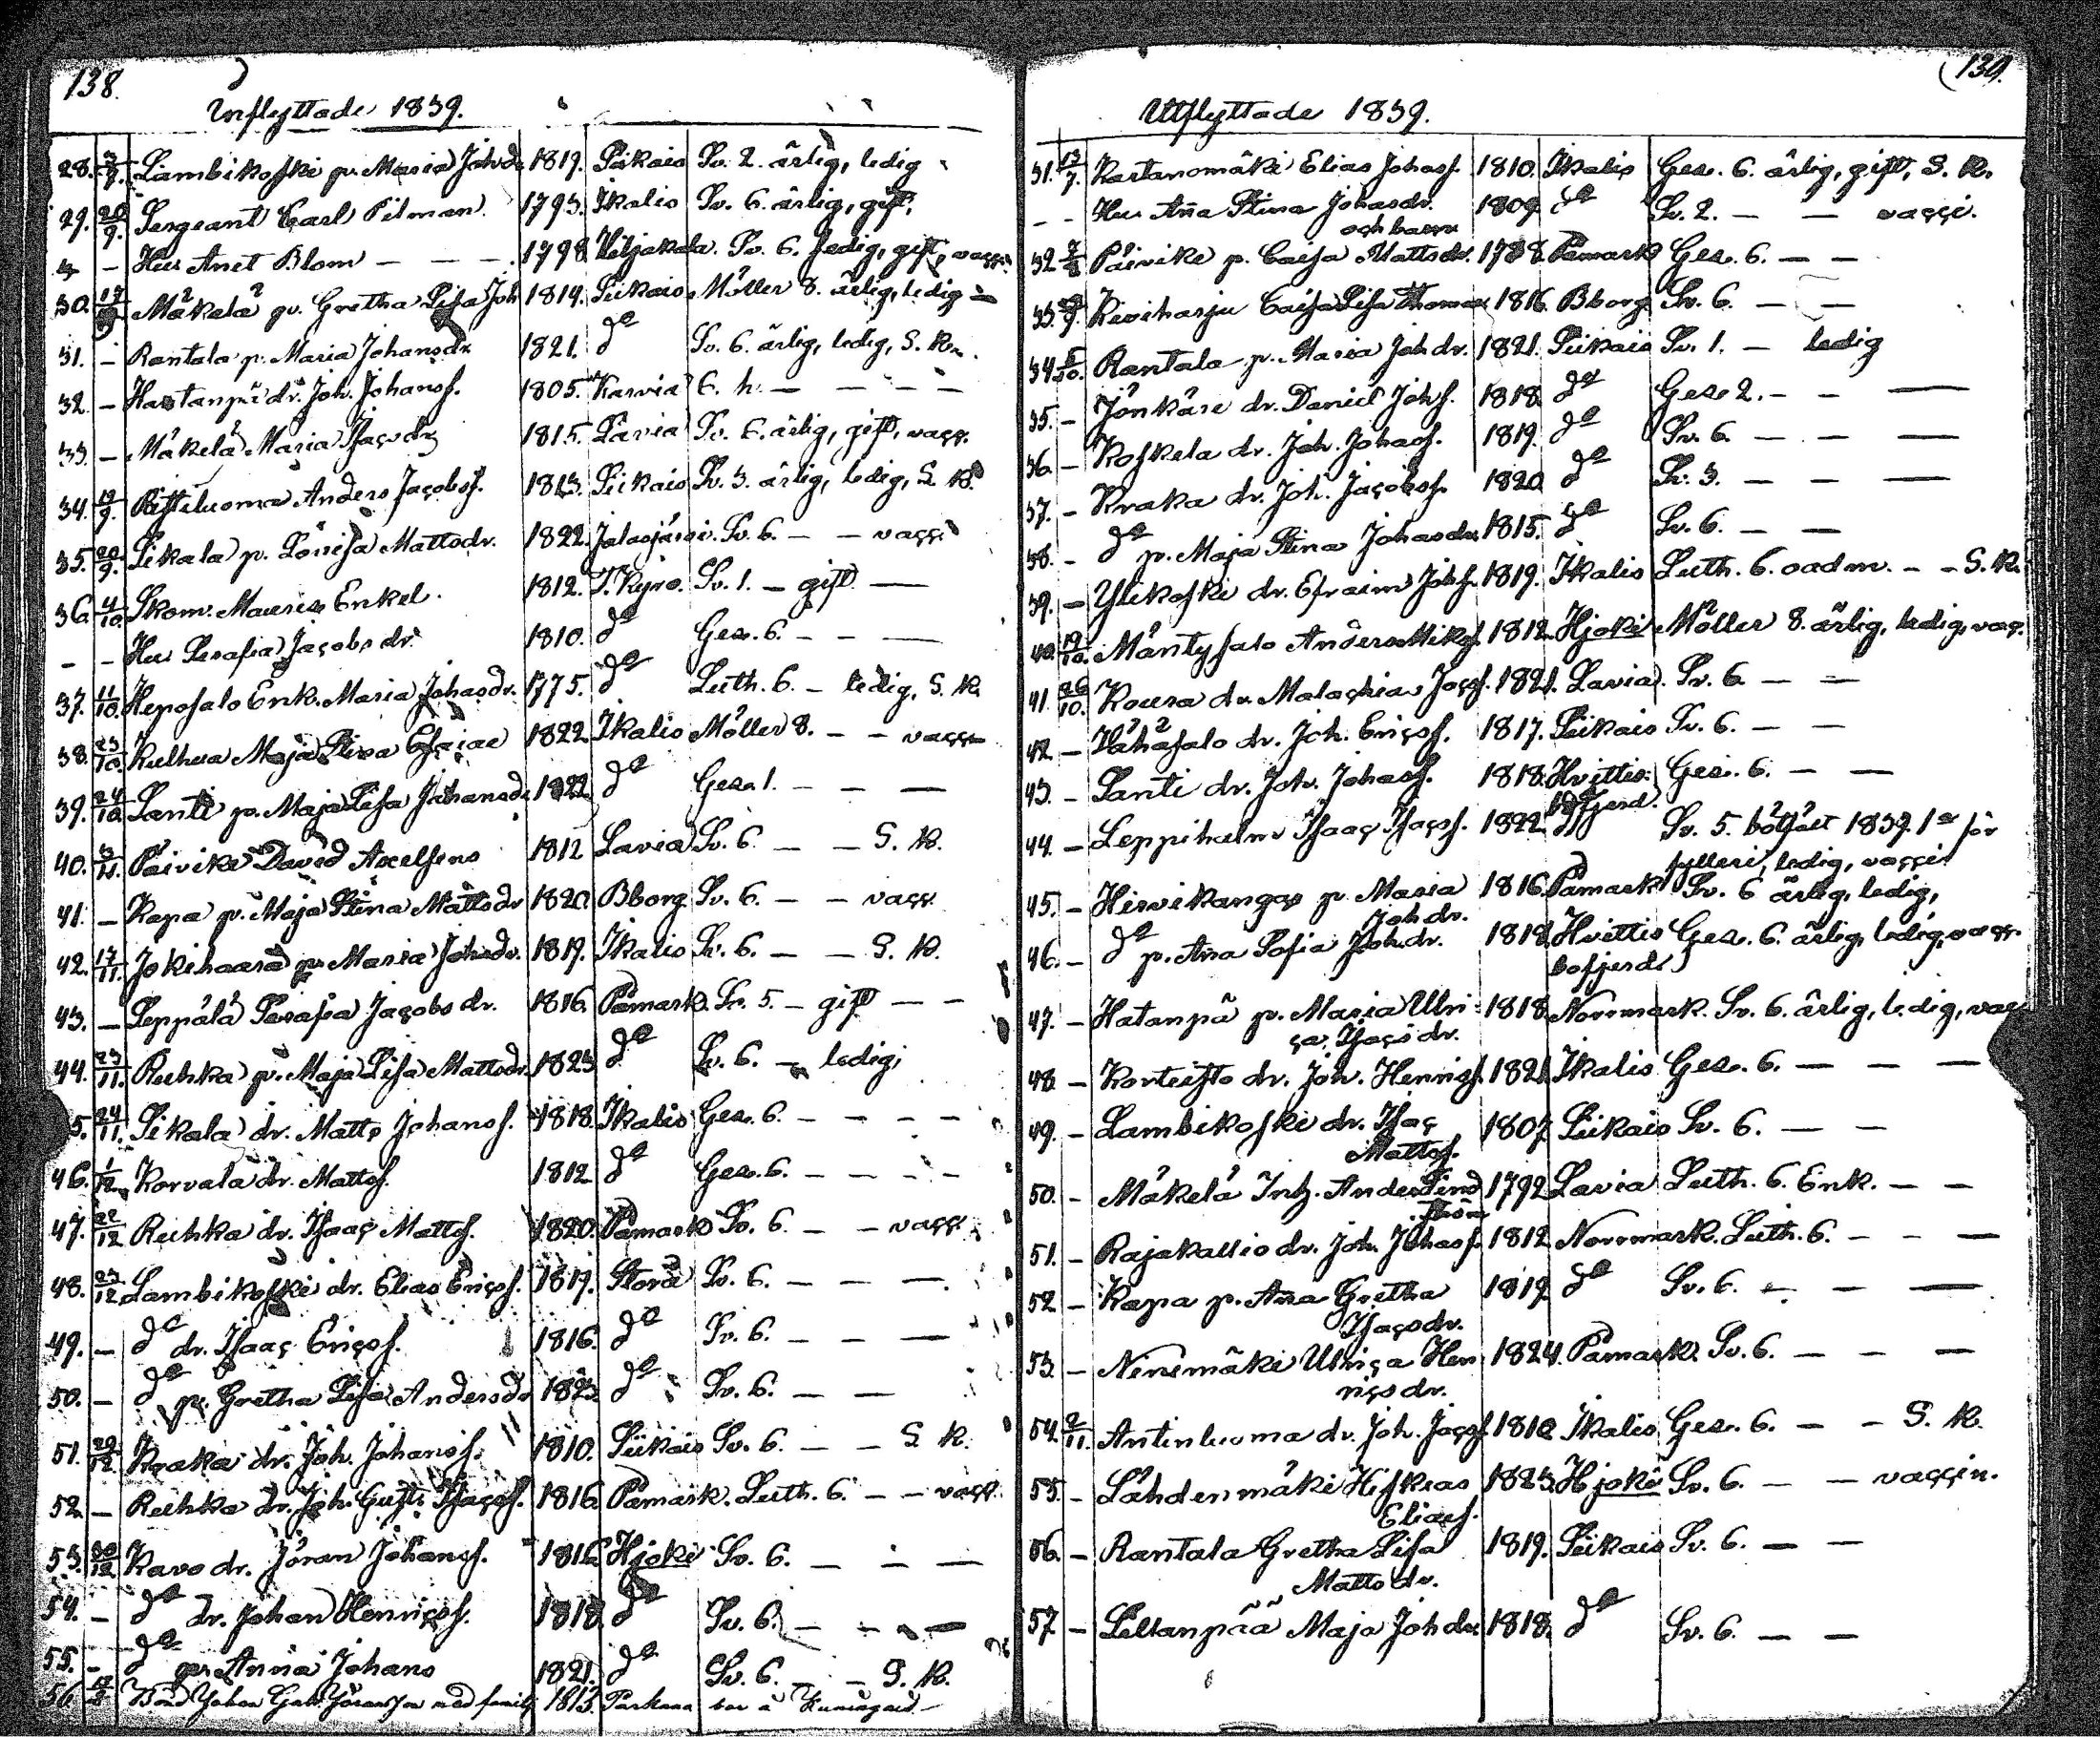 138.
Inflyttade 1839.
28. 3/9. Lambikoski p. Maria Johsdr 1819. Siikais Sv. 2. ärlig, ledig
29. 20/9. Sergeant Carl Pilman. 1793. Ikalis Sv. 6. ärlig, gift,
- Hus Anet Blom - - - 1798 Sv. 6. ledig, gift, vacc.
30. Mäkelä p. Gretha Lisa Joh 1814. Siikais Möller 8. ärlig, ledig -
31. - Rantala p. Maria Johansdr. 1821. do Sv. 6. ärlig, ledig, S. K.
32. - Hatanpä dr. Joh. Johanss. 1805. Karvia 6. h. - - - -
33. - Mäkelä Maria Isacsdr 1815. Lavia Sv. 6. ärlig, gift, vacc.
34. 19/9. Riitiluoma Anders Jacobss. 1823. Siikais Sv. 3. ärlig, ledig, S. K.
35. 20/9. Sikala p. Lovisa Mattsdr. 1822. Jalasjärvi. Sv. 6. - - vacc.
36. 4/10. Skom. Maurits Enkel. 1812. T. Kyro. Sv. 1. - gift -
- - Hus Serafia Jacobsdr. 1810. do Ges. 6. - - -
37. 11/10. Heposalo Enk. Maria Johasdr. 1775. do Luth. 6. - ledig, S. K.
38. 23/10. Kulhua Maja Stina Esaiae 1822 Ikalis Möller 8. - - vacc.
39. 24/10. Santi p. Maja Lisa Johansdr 1822 do Ges. 1. - - -
40. 3/11. Päivike David Axelssons 1812 Lavia Sv. 6. - - S. K.
41. - Kapa p. Maja Stina Mattsdr 1820. Bborg Sv. 6. - - vacc.
42. 17/11. Jokihaara p. Maria Johsdr. 1819. Ikalis Sv. 6. - - S. K.
43. - Leppälä Serafia Jacobsdr. 1816. Påmark. Sv. 5. - gift - -
44. 23/11. Ruhka p. Maja Lisa Mattsdr. 1823 do Sv. 6. - ledig,
5. 24/11. Sikala dr. Matts Johanss. 1818. Ikalis Ges. 6. - - - -
46. 1/12. Korvala dr. Mattss. 1812 do Ges. 6. - - - -
47. 22/12 Ruhka dr. Isaac Mattss. 1820. Påmark Sv. 6. - - vacc.
48. 23/12. Lambikoski dr. Elias Ericss. 1819. Storå Sv. 6. - - -
49. - do dr. Isaac Ericss. 1816. do Sv. 6. - - -
50. - do p. Gretha Lisa Andersdr 1823. do Sv. 6. - -
51. 29/12. Kraka dr. Joh. Johanss. 1810. Siikais Sv. 6. - - S. K.
52. - Ruhka dr. Joh. Gust. Isacss. 1816. Påmark. Luth. 6. - - vacc.
53. 30/12 Kavo dr. Jöran Johanss. 1816. Hjoki Sv. 6. - - -
54. - do dr. Johan Henricss. 1818. do Sv. 6. - - -
55. - do p. Anna Johans 1821. do Sv. 6. - S. K.
56. Bond Johan Gab. Jöransson med familj 1813. Parkano
139.
Utflyttade 1839.
31. 13/7. Kartanomäki Elias Johass. 1810. Ikalis Ges. 6. ärlig, gift, S. K.
- - Hus Aña Stina Johasdr. 1809. do Sv. 2. - - vacci.
och barn
32. Päivike p. Caisa Mattsdr. 1788. Påmark Ges. 6. - -
33. Kiviharju Caisa Lisa Thomas 1816. Bborg Sv. 6. - -
34. 5/10. Rantala p. Maria Johdr. 1821. Siikais Sv. 1. - ledig
35. - Jönkäre dr. Daniel Johs. 1818. do Ges. 2. - - -
36. - Koskela dr. Joh. Johass. 1819. do Sv. 6. - - -
37. - Kraka dr. Joh. Jacobss. 1820. do Sv. 3. - - -
38. - do p. Maja Stina Johasdr. 1815. do Sv. 6. - -
39. - Ylikoski dr. Efraim Johs. 1819. Ikalis Luth. 6. oadm. - - S. K.
40. 19/10. Mäntysalo Anders Mikss. 1812. Hjoki Möller 8. ärlig, ledig, vac.
41. 26/10. Koura dr. Malachias Jacss. 1821. Lavia. Sv. 6. - -
42. - Hähäsalo dr. Joh. Ericss. 1817. Siikais Sv. 6. - -
43. - Santi dr. Joh. Johass. 1818. Hvittis Ges. 6. - -
44. - Leppihalm Isaac Isacss. 1822. Sv. 5. bötfält 1839. 1a för
fylleri, ledig, vacci.
45. - Hirvikangas p. Maria 1816. Påmark Sv. 6 ärlig, ledig,
Johdr.
46. - do p. Aña Sofia Johdr. 1818. Hvittis Ges. 6. ärlig, ledig, vacc.
bofjerd.
47. - Hatanpä p. Maria Ulri- 1818. Norrmark. Sv. 6. ärlig, ledig, vac
ca Isacsdr.
48. - Korteisto dr. Joh. Henrics. 1821. Ikalis Ges. 6. - - -
49. - Lambikoski dr. Isac 1807 Siikais Sv. 6. - -
Mattss.
50. - Mäkelä Inh. Anders Lind 1792 Lavia Luth. 6. Enk. - -
ström
51. - Rajakallio dr. Joh. Johass. 1812 Norrmark. Luth. 6. - - -
52 - Kapa p. Aña Gretha 1819. do Sv. 6. - - -
Isacsdr.
53. - Ninimäki Ulrica Hen 1824. Påmark. Sv. 6. - - -
ricsdr.
54. 2/11. Antinluoma dr. Joh. Jacss. 1818 Ikalis Ges. 6. - - S. K.
55. - Lähdenmäki Hiskias 1823. Hjoki Sv. 6. - - vaccin.
Eliass.
56. - Rantala Gretha Lisa 1819. Siikais Sv. 6. - -
Mattsdr.
57 - Liiltanpää Maja Johdr. 1818. do Sv. 6. - -